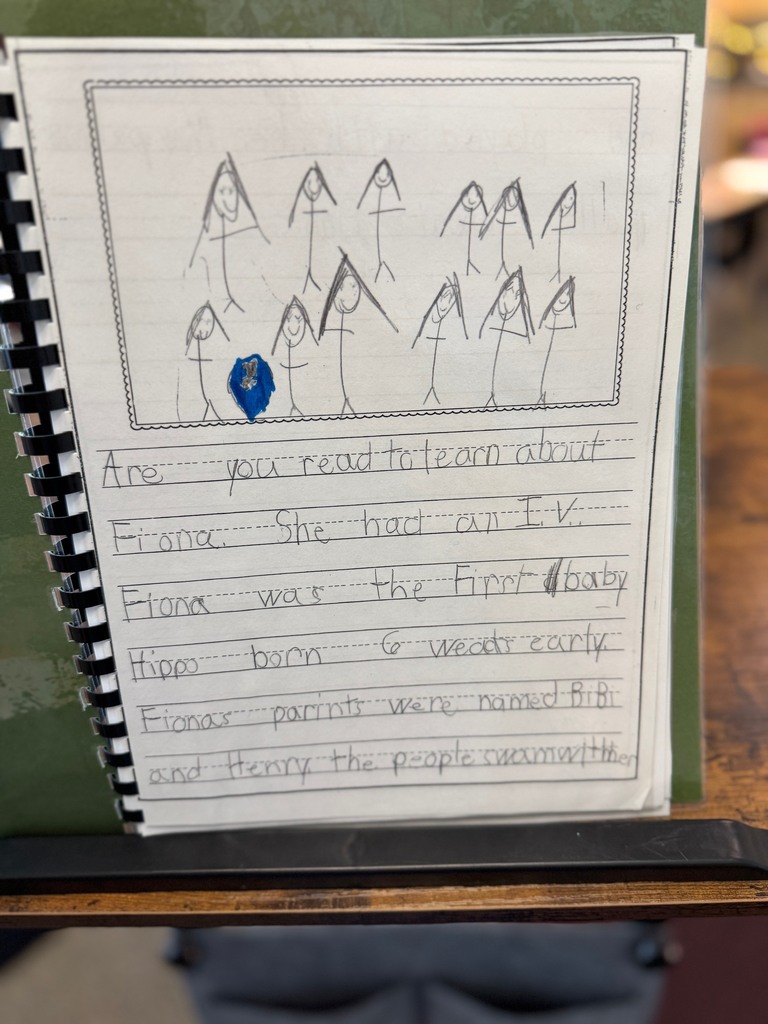 Are you read to learn about
Fiona. She had an I.V.
Fiona was the First baby
Hippo born 6 weads early.
Fionas parints were named BiBi
and Henry. the people swam with her